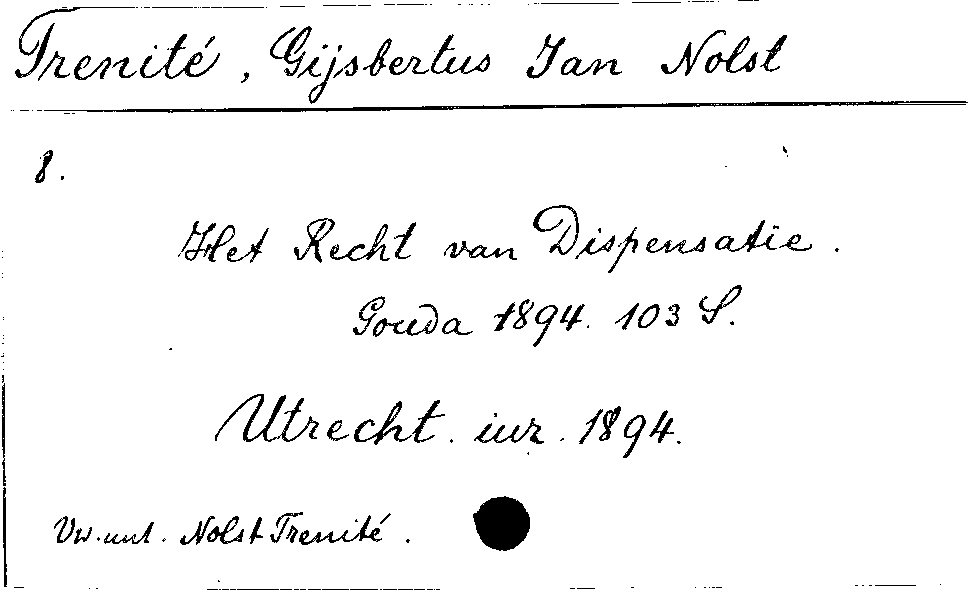 Trenité, Gijsbertus Jan Nolst
8.
Het Recht van Dispensatie.
Gouda 1894. 103 S.
Utrecht. iur. 1894.
Vw. unt. Nolst Trenité.